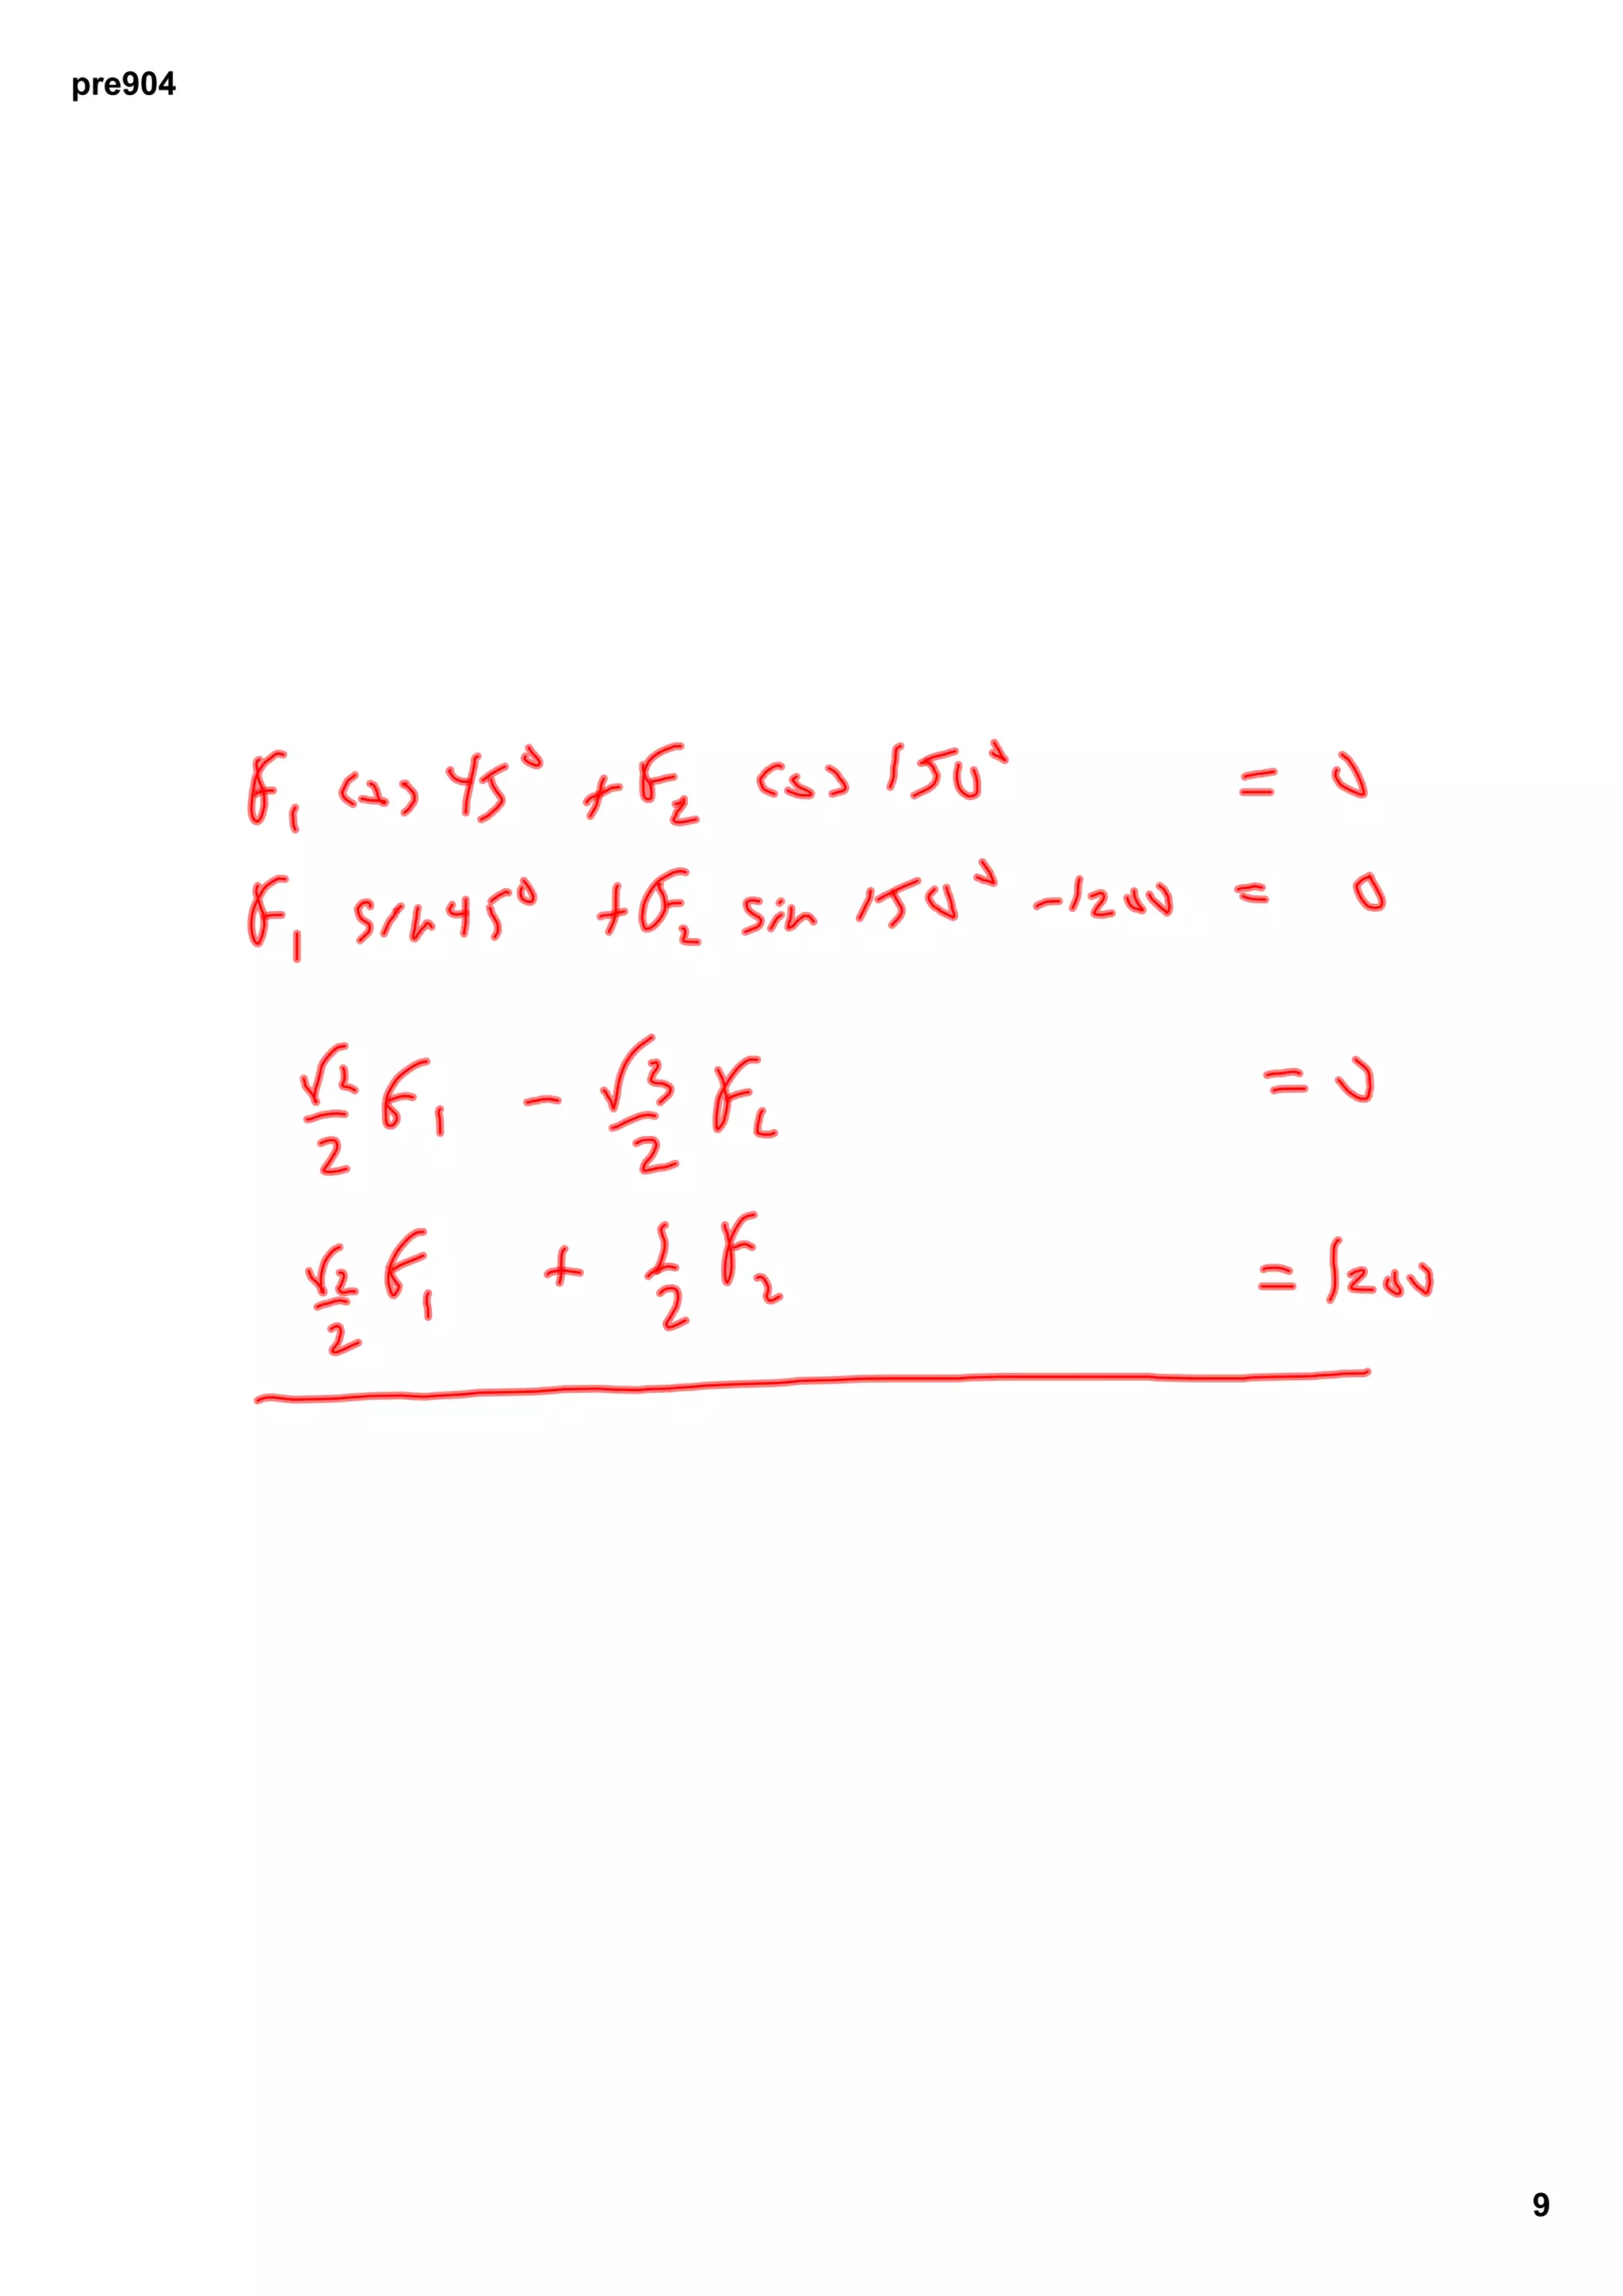 pre904
F₁ cos 45° + F₂ cos 150° = 0
F₁ sin 45° + F₂ sin 150° - 1200 = 0
√2/2 F₁ - √3/2 F₂ = 0
√2/2 F₁ + 1/2 F₂ = 1200
9